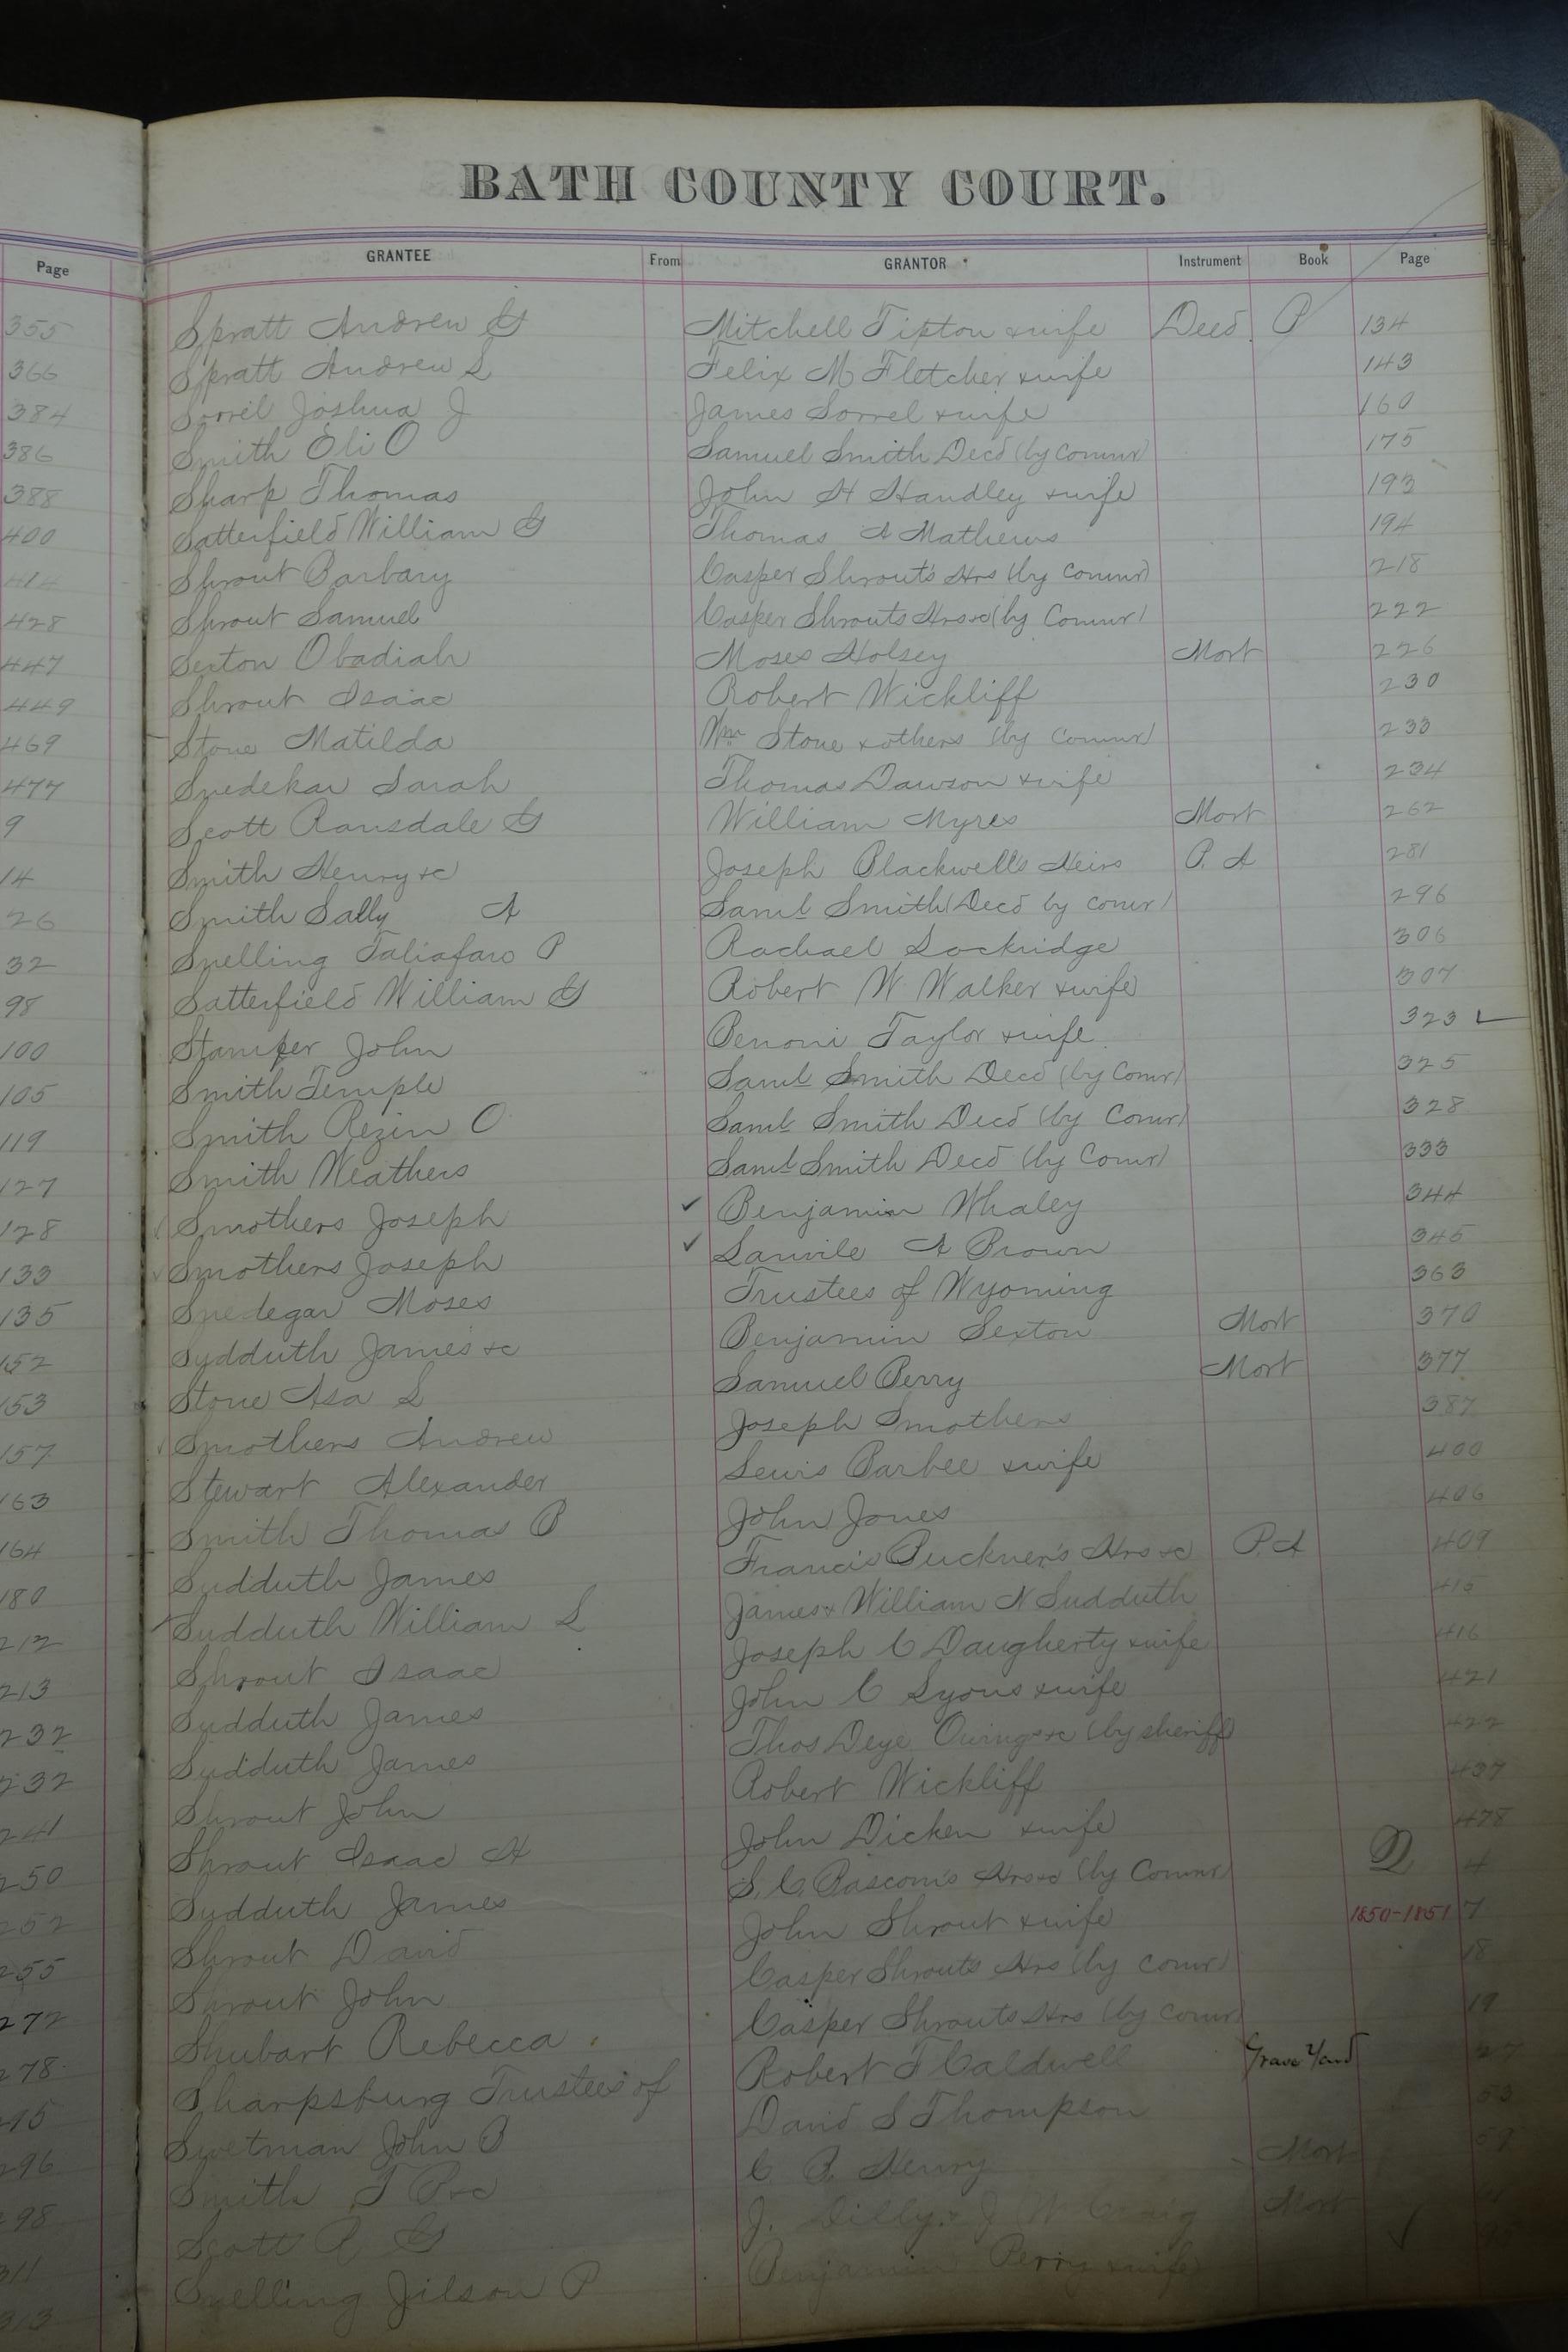 BATH COUNTY COURT.
Page GRANTEE From GRANTOR Instrument Book Page
355 Spratt Andrew G Mitchell Tipton & wife Deed P 134
366 Spratt Andrew L Felix M Fletcher & wife 143
384 Sorrel Joshua J James Sorrel & wife 160
386 Smith Eli O Samuel Smith Decd (by Commr) 175
388 Sharp Thomas John H Handley & wife 193
400 Satterfield William G Thomas A Mathews 194
414 Shrout Barbary Casper Shrout's Hrs (by Commr) 218
428 Shrout Samuel Casper Shrouts Hrs &c (by Commr) 222
447 Sexton Obadiah Moses Holsey Mort 226
449 Shrout Isaac Robert Wickliff 230
469 Stone Matilda Wm Stone & others (by Commr) 233
477 Snedekar Sarah Thomas Dawson & wife 234
9 Scott Ransdale G William Myres Mort 262
14 Smith Henry &c Joseph Blackwells Heirs P. A 281
26 Smith Sally A Saml Smith (Decd by comr) 296
32 Snelling Taliafaro P Rachael Lockridge 306
98 Satterfield William G Robert W Walker & wife 307
100 Stamper John Benoni Taylor & wife 323 ✓
105 Smith Temple Saml Smith Decd (by Comr) 325
119 Smith Rezin O Saml Smith Decd (by Comr) 328
127 Smith Weathers Saml Smith Decd (by Comr) 333
128 Smothers Joseph ✓ Benjamin Whaley 344
133 Smothers Joseph ✓ Sanvile A Brown 345
135 Snedegar Moses Trustees of Wyoming 363
152 Sudduth James &c Benjamin Sexton Mort 370
153 Stone Asa L Samuel Berry Mort 377
157 Smothers Andrew Joseph Smothers 387
163 Stewart Alexander Lewis Barbee & wife 400
164 Smith Thomas B John Jones 406
180 Sudduth James Francis Buckner's Hrs &c P. A 409
212 Sudduth William L James & William N Sudduth 415
213 Shrout Isaac Joseph C Daugherty & wife 416
232 Sudduth James John C Lyons & wife 421
232 Sudduth James Thos Deye Owings &c (by sheriff) 422
241 Shrout John Robert Wickliff 437
250 Shrout Isaac H John Dicken & wife 478
252 Sudduth James S. C. Bascom's Hrs &c (by Commr) Q 4
255 Shrout David John Shrout & wife 1850-1851 7
272 Shrout John Casper Shrouts Hrs (by comr) 18
278 Shubart Rebecca Casper Shrouts Hrs (by comr) 19
295 Sharpsburg Trustees of Robert T Caldwell Grave Yard 27
296 Swetman John B David S Thompson 53
298 Smith T P &c C. B. Henry Mort 59
311 Scott R G J. Lilly & J W Craig Mort
313 Snelling Jilson P Benjamin Perry & wife